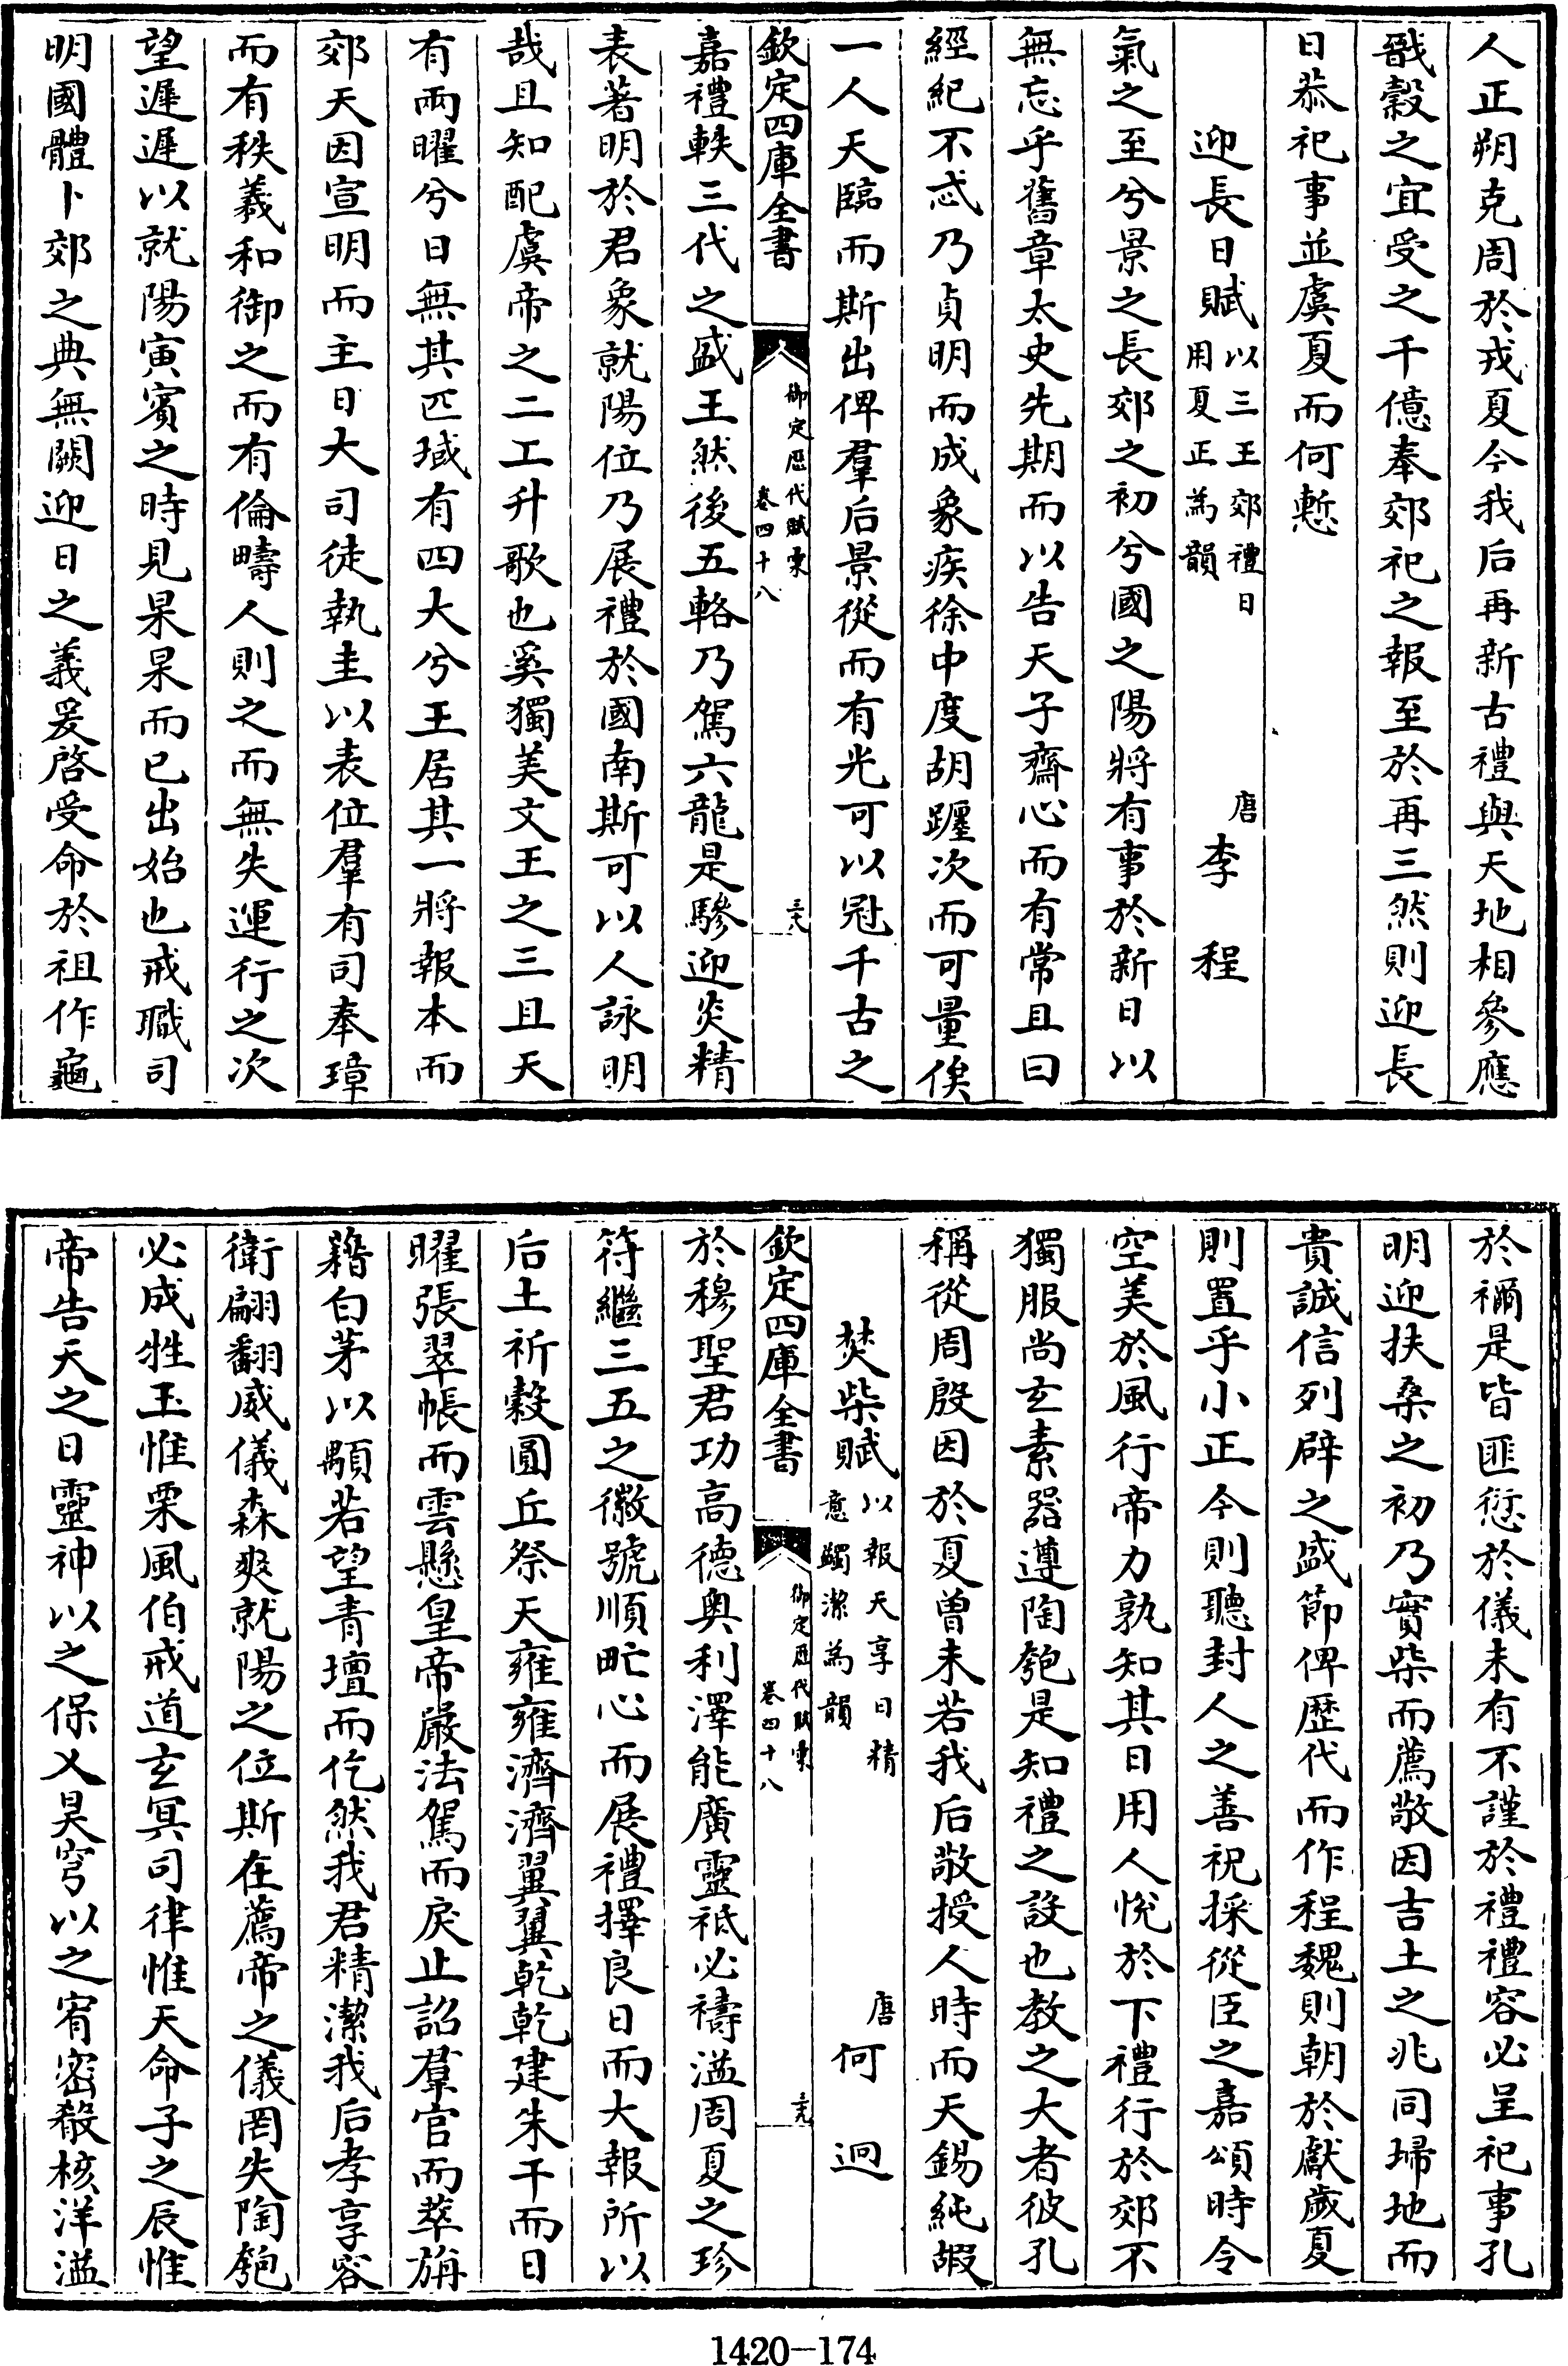 人正朔克周於戎夏今我后再新古禮與天地相參應
戩穀之宜受之千億奉郊祀之報至於再三然則迎長
日恭祀事並虞夏而何慙
迎長日賦以三王郊禮日用夏正為韻 唐李程
氣之至兮景之長郊之初兮國之陽將有事於新日以
無忘乎舊章太史先期而以告天子齋心而有常且曰
經紀不忒乃貞明而成象疾徐中度胡躔次而可量俟
一人天臨而斯出俾羣后景從而有光可以冠千古之
欽定四庫全書 御定歷代賦彙 卷四十八 三六
嘉禮軼三代之盛王然後五輅乃駕六龍是驂迎炎精
表著明於君象就陽位乃展禮於國南斯可以人詠明
哉且知配虞帝之二工升歌也奚獨美文王之三且天
有兩曜兮日無其匹域有四大兮王居其一將報本而
郊天因宣明而主日大司徒執圭以表位羣有司奉璋
而有秩羲和御之而有倫疇人則之而無失運行之次
望遲遲以就陽寅賓之時見杲杲而已出始也戒職司
明國體卜郊之典無闕迎日之義爰啓受命於祖作龜
於禰是皆匪愆於儀未有不謹於禮禮容必呈祀事孔
明迎扶桑之初乃實柴而薦敬因吉土之兆同埽地而
貴誠信列辟之盛節俾歷代而作程魏則朝於獻歲夏
則置乎小正今則聽封人之善祝採從臣之嘉頌時令
空美於風行帝力孰知其日用人悅於下禮行於郊不
獨服尚玄素器遵陶匏是知禮之設也教之大者彼孔
稱從周殷因於夏曾未若我后敬授人時而天錫純嘏
焚柴賦以報天享日精意蠲潔為韻 唐何迥
欽定四庫全書 御定歷代賦彙 卷四十八 三九
於穆聖君功高德奧利澤能廣靈祇必禱溢周夏之珍
符繼三五之徽號順甿心而展禮擇良日而大報所以
后土祈穀圓丘祭天雍雍濟濟翼翼乾乾建朱干而日
曜張翠帳而雲懸皇帝嚴法駕而戾止詔羣官而萃旃
藉白茅以顒若望青壇而仡然我君精潔我后孝享容
衛翩翻威儀森爽就陽之位斯在薦帝之儀罔失陶匏
必成牲玉惟栗風伯戒道玄冥司律惟天命子之辰惟
帝告天之日靈神以之保乂昊穹以之宥密殽核洋溢
1420-174